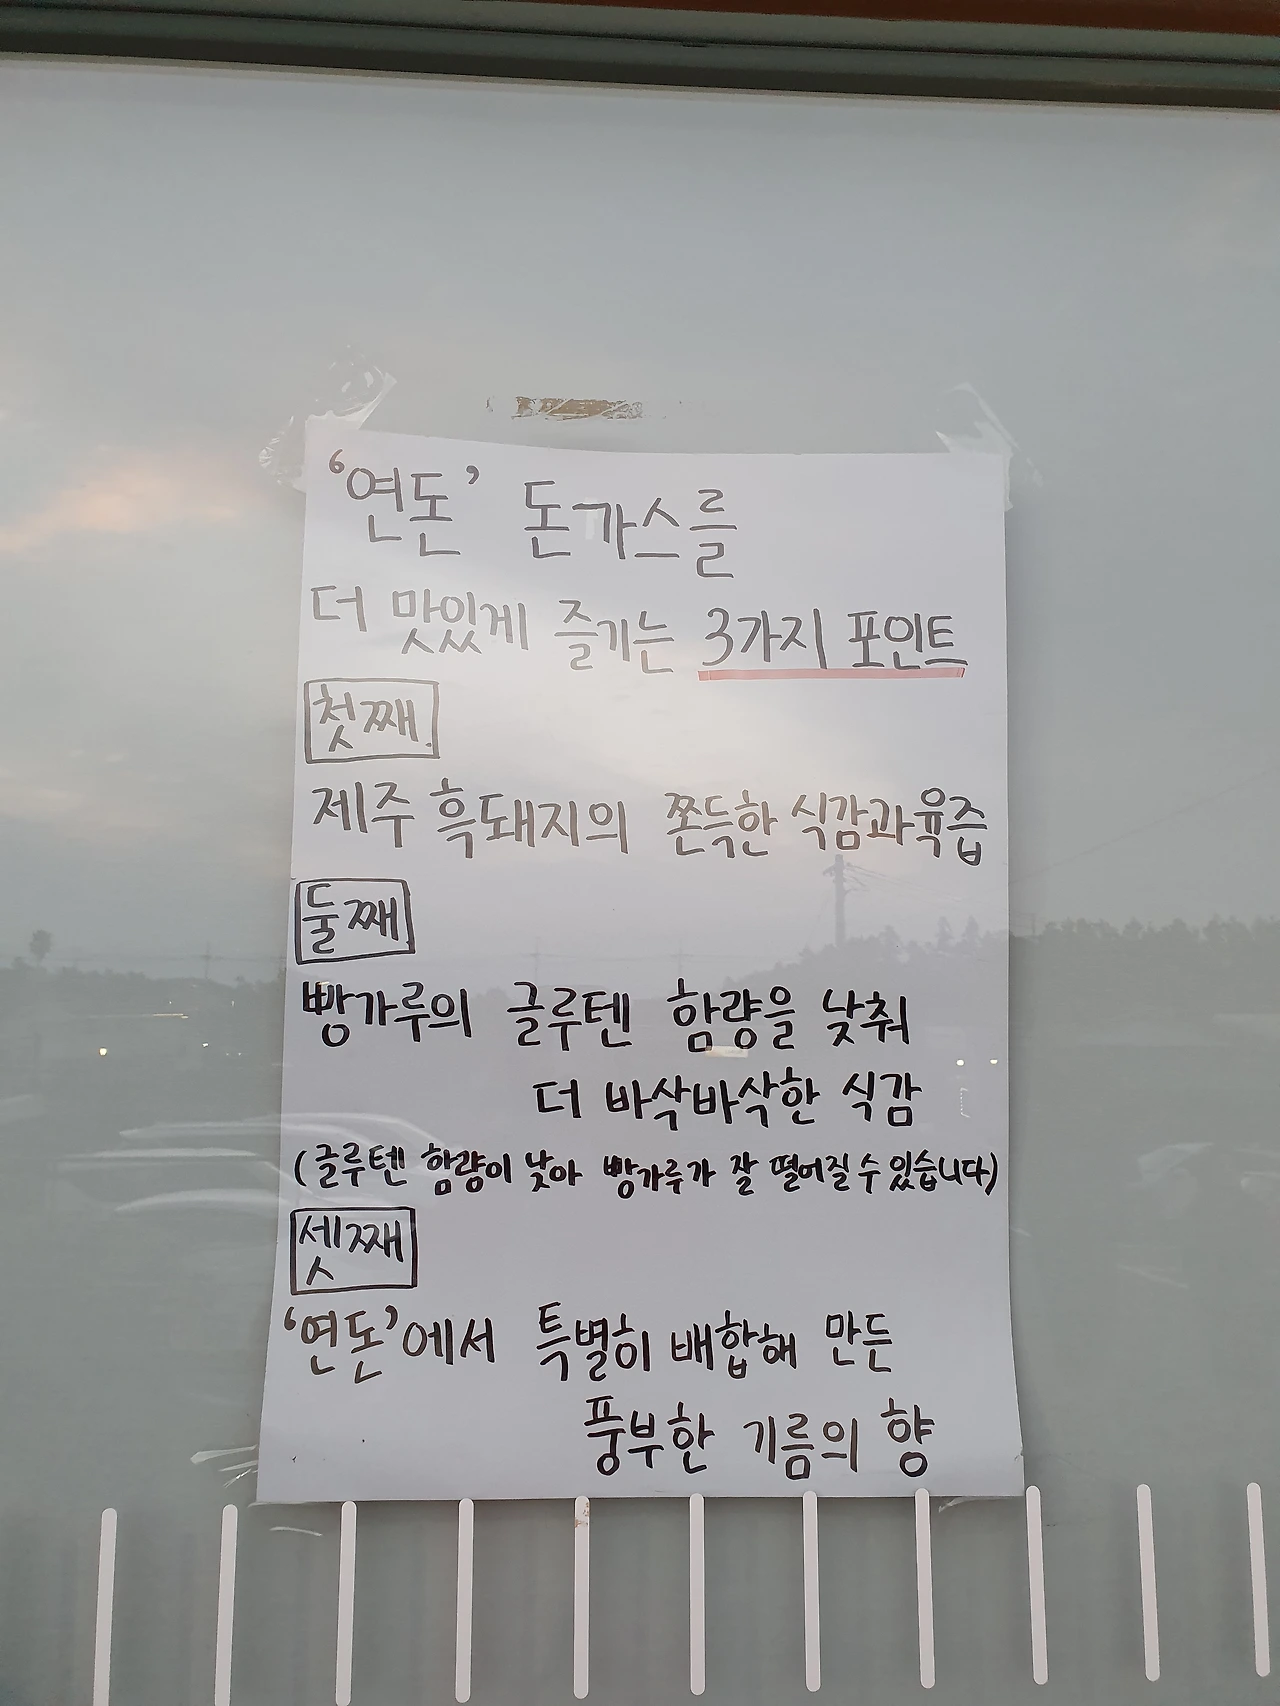 '연돈' 돈가스를
더 맛있게 즐기는 3가지 포인트
첫째.
제주 흑돼지의 쫀득한 식감과 육즙
둘째
빵가루의 글루텐 함량을 낮춰
더 바삭바삭한 식감
(글루텐 함량이 낮아 빵가루가 잘 떨어질 수 있습니다)
셋째
'연돈'에서 특별히 배합해 만든
풍부한 기름의 향